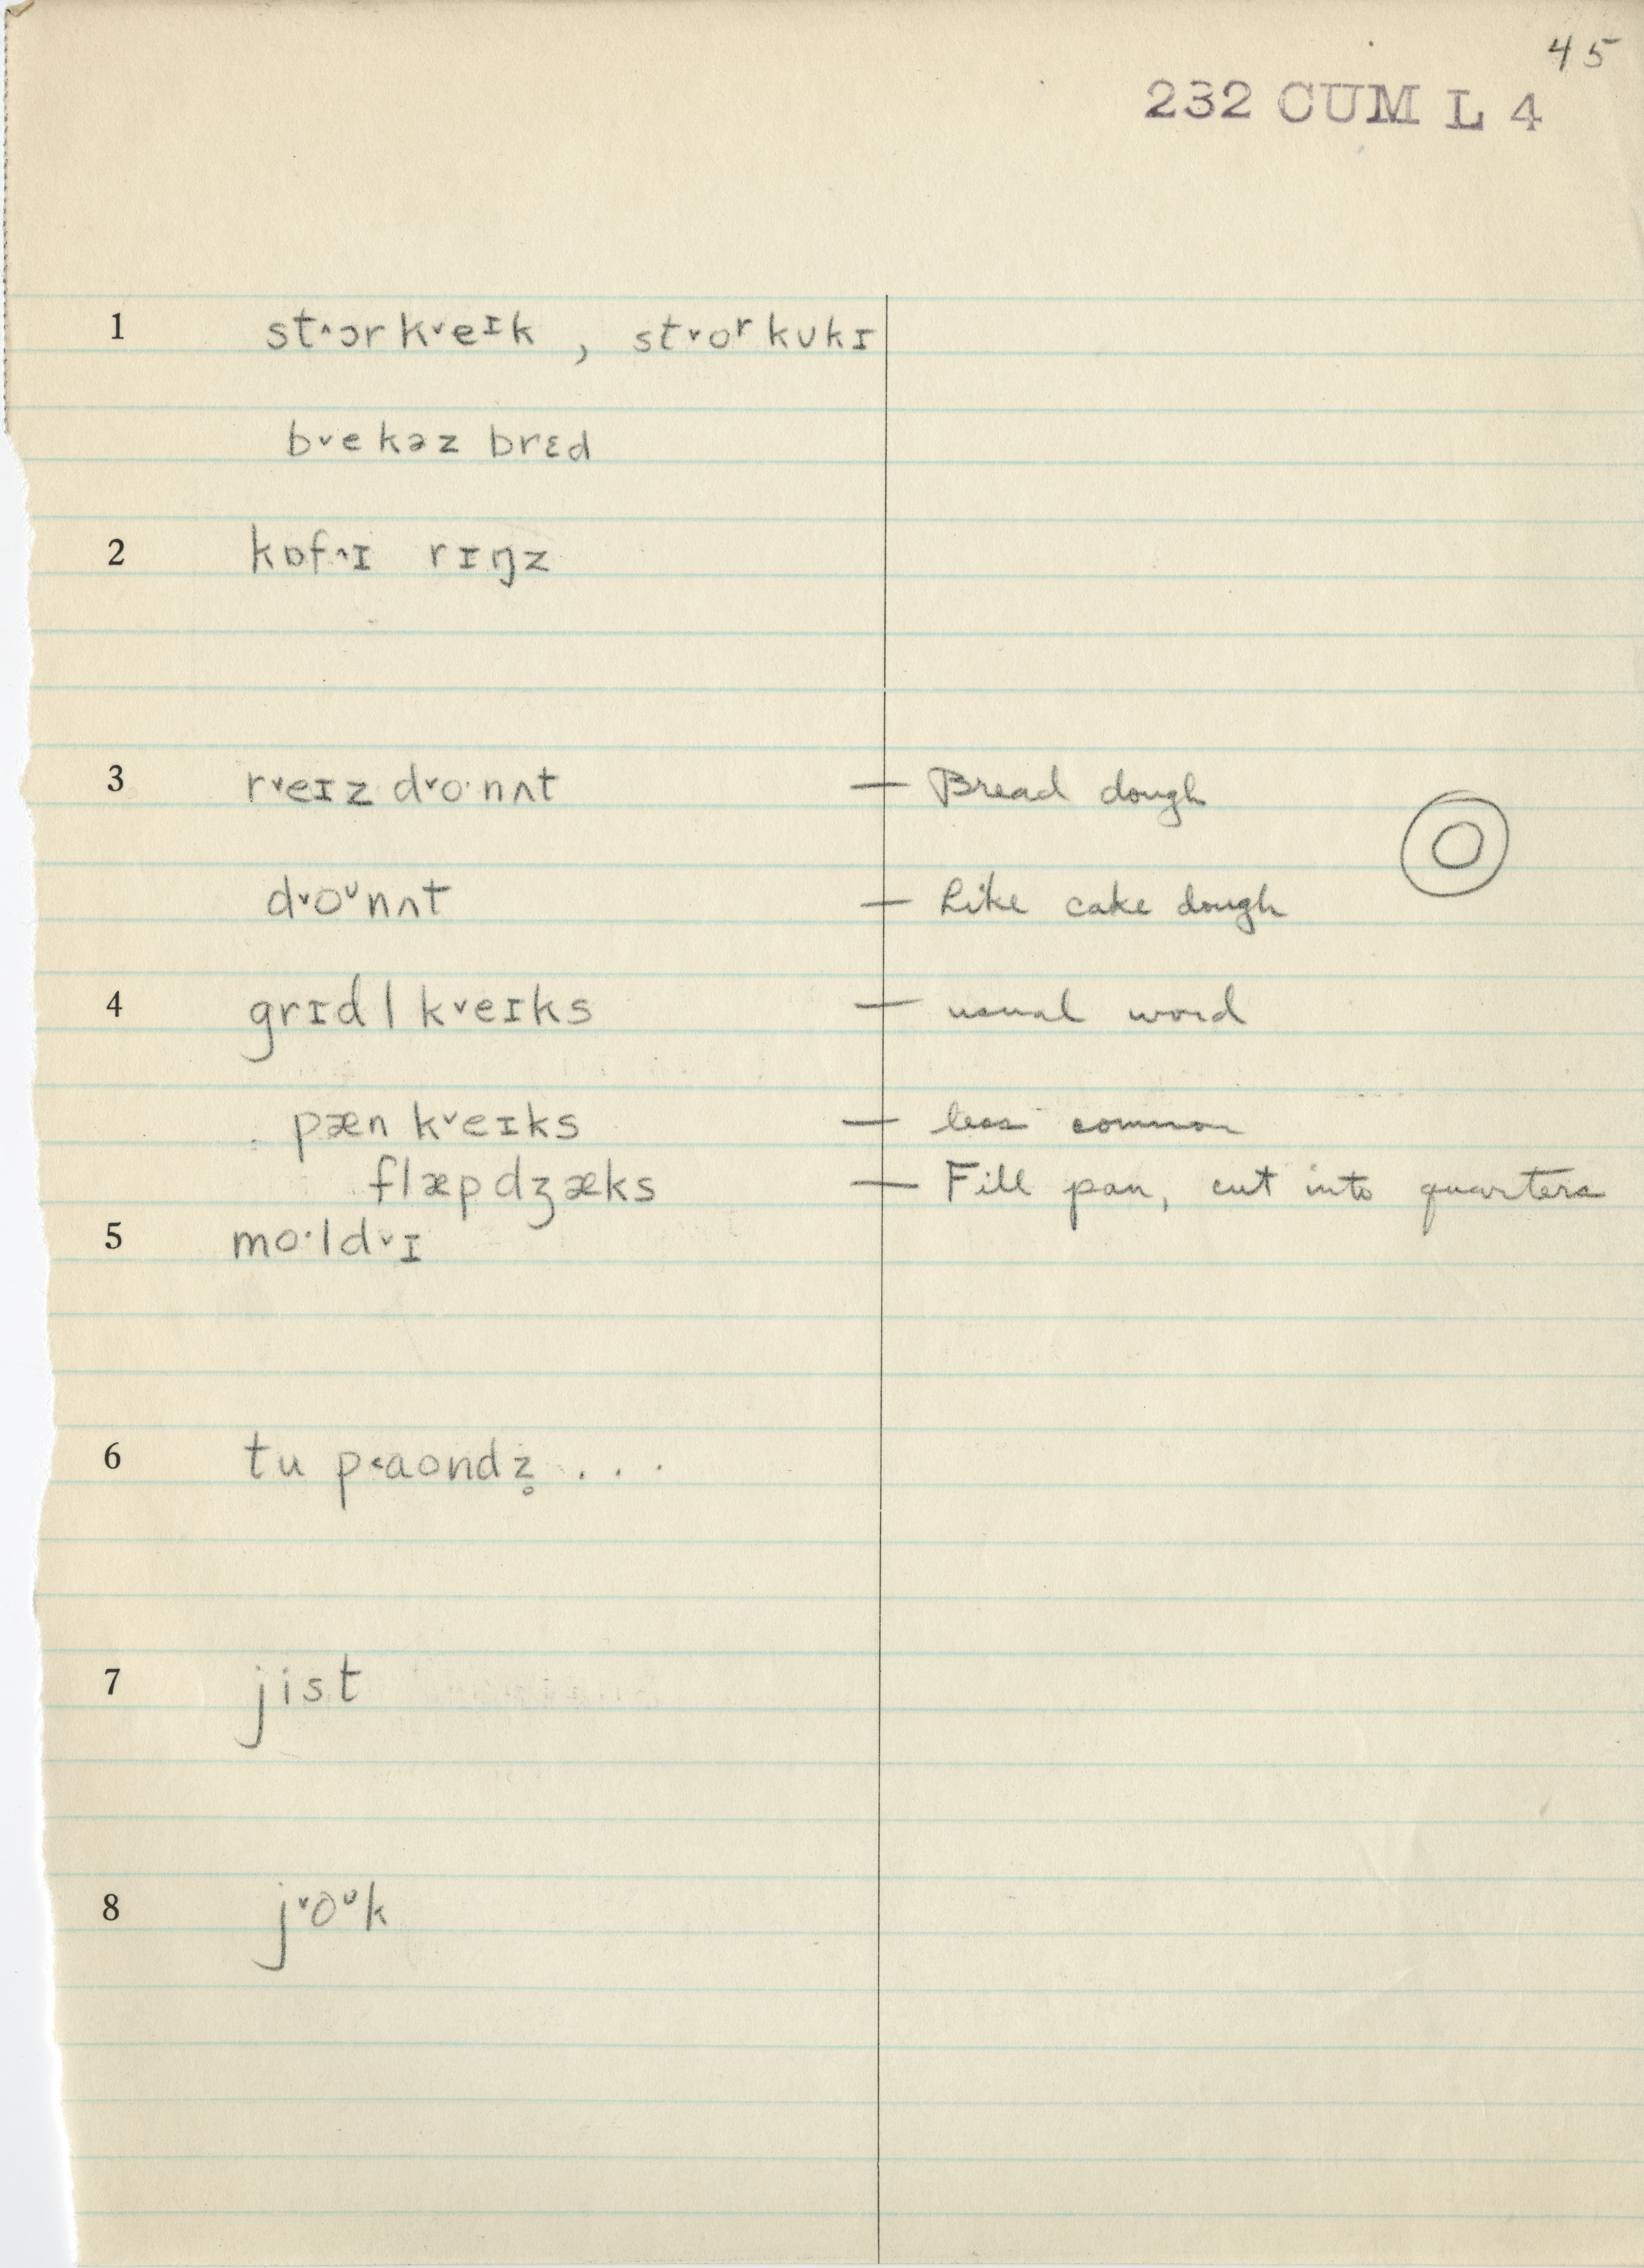 45
232 CUM L 4
1 st˄ɔr k˅eɪk , st˅oʳ kʊkɪ
b˅ekəz brɛd
2 kɒf˄ɪ rɪŋz
3 r˅eɪz d˅o·nʌt — Bread dough
d˅oᶷnʌt — Like cake dough
4 grɪdl k˅eɪks — usual word
pæn k˅eɪks — less common
flæpdʒæks — Fill pan, cut into quarters
5 mo·ld˅ɪ
6 tu p˂aondz̥ . . .
7 jist
8 j˅oᶷk